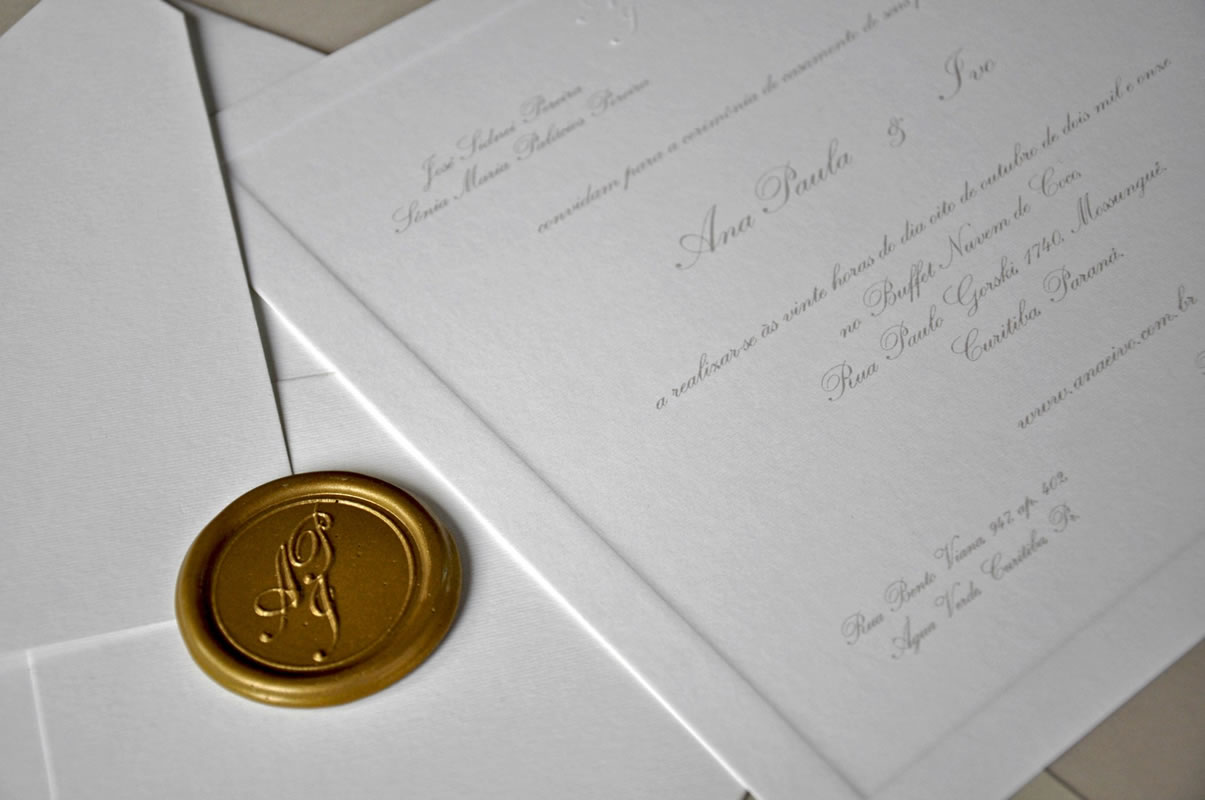 José Sidnei Pereira
Sônia Maria Palácios Pereira
convidam para a cerimônia de casamento de seus
Ana Paula & Ivo
a realizar-se às vinte horas do dia oito de outubro de dois mil e onze
no Buffet Nuvem de Coco,
Rua Paulo Gorski, 1740, Mossunguê.
Curitiba, Paraná.
www.anaeivo.com.br
Rua Bento Viana, 942 ap. 402
Água Verde, Curitiba, Pr.